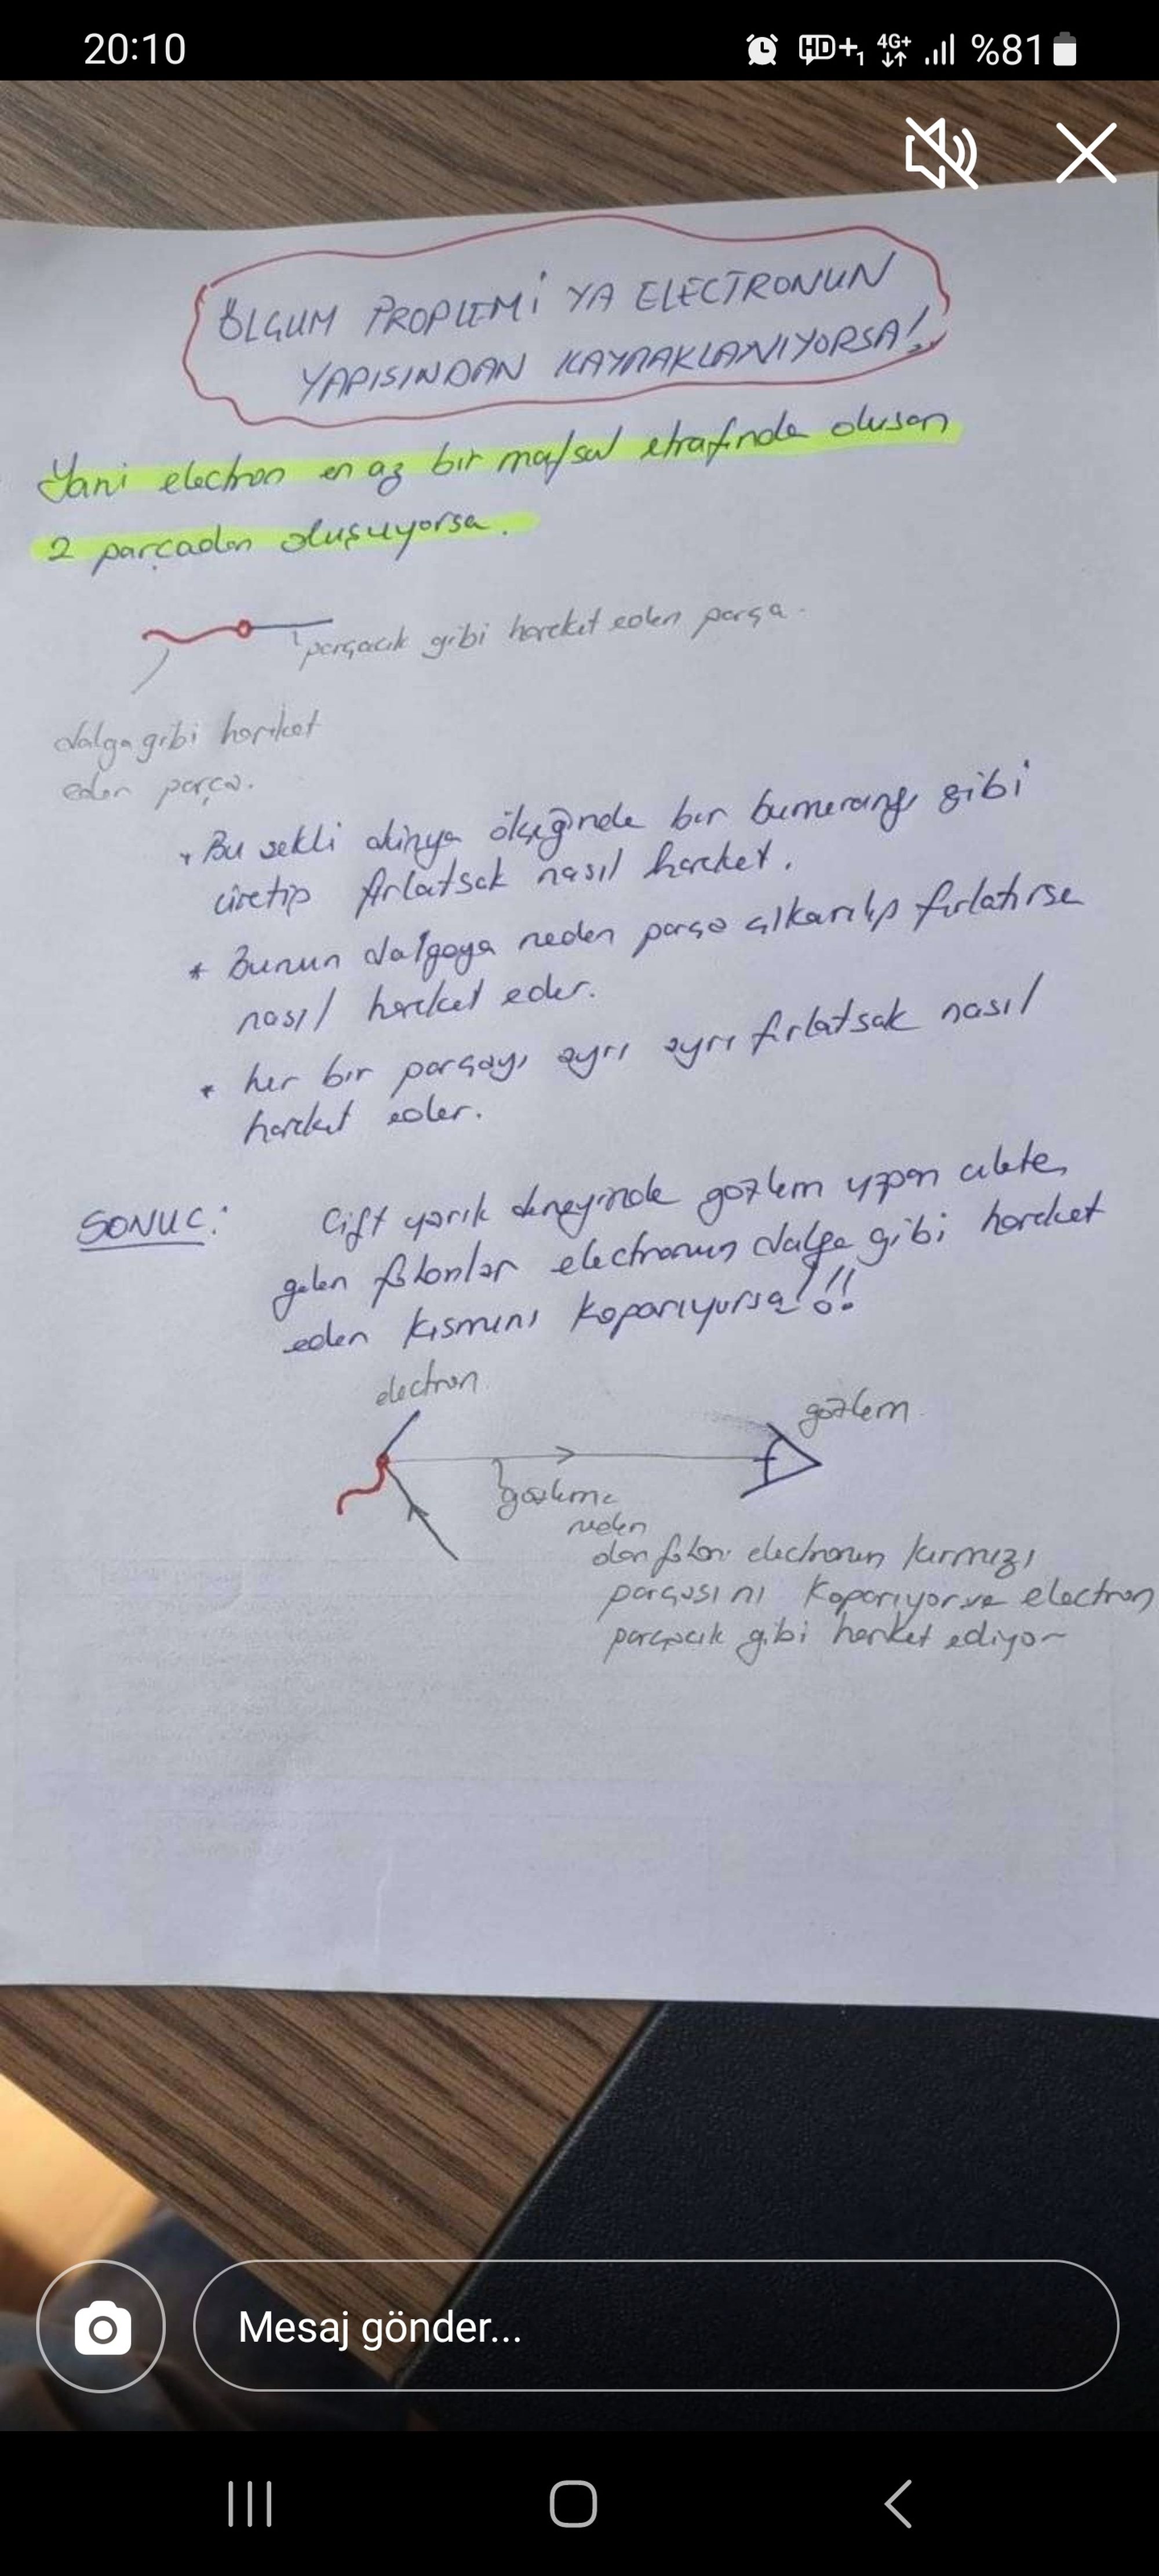 20:10
HD+1 4G+ %81
ÖLÇÜM PROPLEMİ YA ELECTRONUN
YAPISINDAN KAYNAKLANIYORSA!..
Yani electron en az bir mafsal etrafında olusan
2 parçadan oluşuyorsa.
parçacık gibi hareket eden parça.
dalga gibi hareket
eden parça.
* Bu sekli dünya ölçeğinde bir bumerang gibi
üretip fırlatsak nasıl hareket.
* Bunun dalgaya neden parça çıkarılıp fırlatırsa
nasıl hareket eder.
* her bir parçayı ayrı ayrı fırlatsak nasıl
hareket eder.
SONUC: Çift yarık deneyinde gozlem yapan alete
gelen fotonlar electronun dalga gibi hareket
eden kısmını koparıyorsa!!!
electron
gozlem
gozleme
neden
olan foton electronun kırmızı
parçasını koparıyorsa electron
parçacık gibi hareket ediyor
Mesaj gönder...